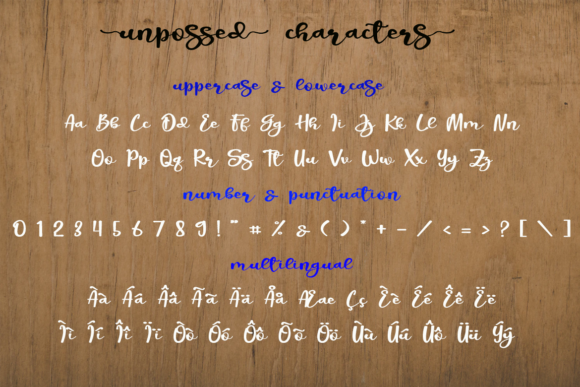 unpossed characters
uppercase & lowercase
Aa Bb Cc Dd Ee Ff Gg Hh Ii Jj Kk Ll Mm Nn
Oo Pp Qq Rr Ss Tt Uu Vv Ww Xx Yy Zz
number & punctuation
0 1 2 3 4 5 6 7 8 9 ! " # % & ( ) * + - / < = > ? [ \ ]
multilingual
Àà Áá Ââ Ãã Ää Åå Æae Çç Èè Éé Êê Ëë
Ìì Íí Îî Ïï Òò Óó Ôô Õõ Öö Ùù Úú Ûû Üü Ýÿ